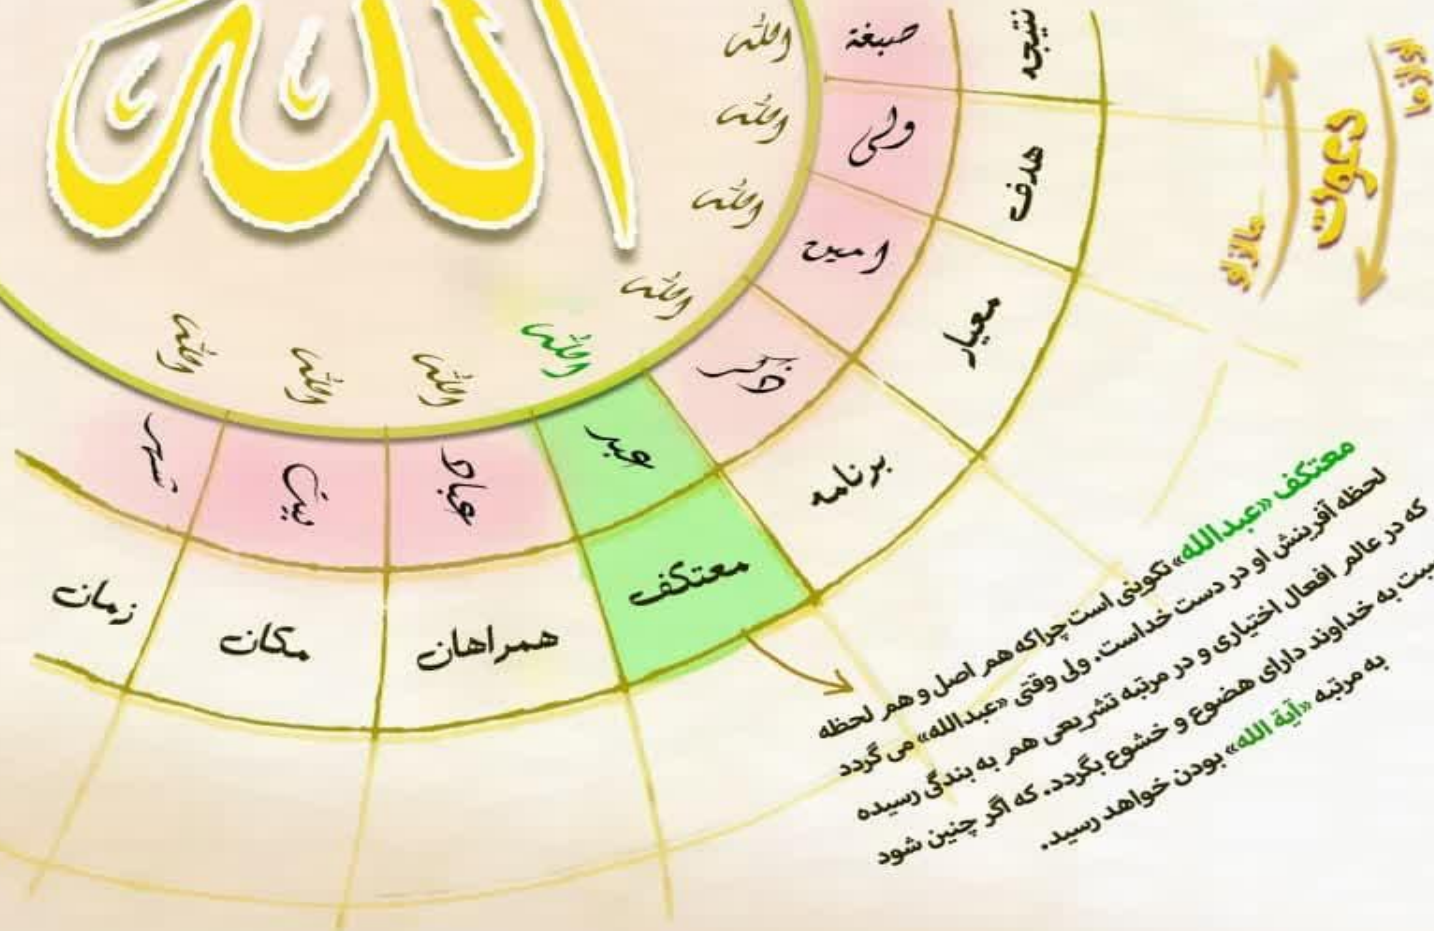 الله
الله
الله
الله
الله
الله
الله
الله
الله
صبغة
ولی
امین
ذکر
عبد
عباد
بیت
شهر
نتیجه
هدف
معیار
برنامه
معتکف
همراهان
مکان
زمان
دعوت
او از ما
ما از او
معتکف «عبدالله» تکوینی است چراکه هم اصل و هم لحظه
لحظه آفرینش او در دست خداست. ولی وقتی «عبدالله» می گردد
که در عالم افعال اختیاری و در مرتبه تشریعی هم به بندگی رسیده
به خداوند دارای هضوع و خشوع بگردد. که اگر چنین شود
به مرتبه «آیة الله» بودن خواهد رسید.